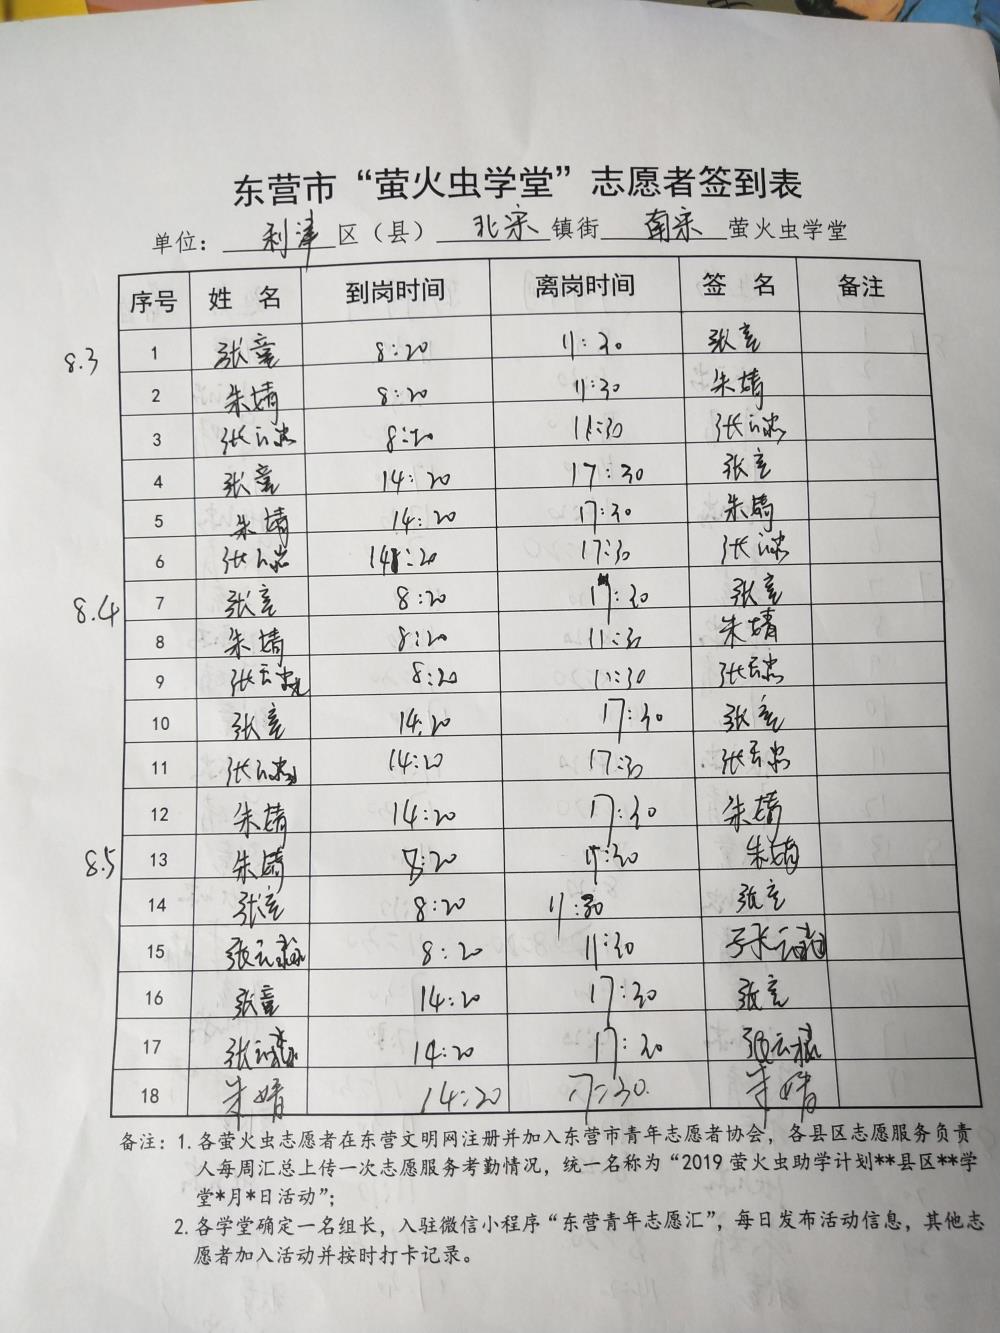 东营市“萤火虫学堂”志愿者签到表
单位：利津区（县）北宋镇街南宋萤火虫学堂
序号 姓 名 到岗时间 离岗时间 签 名 备注
8.3 1 张童 8:20 11:30 张童
2 朱婧 8:20 11:30 朱婧
3 张 8:20 11:30 张
4 张童 14:20 17:30 张童
5 朱婧 14:20 17:30 朱婧
6 张 14:20 17:30 张
8.4 7 张童 8:20 11:30 张童
8 朱婧 8:20 11:30 朱婧
9 张云 8:20 11:30 张云
10 张童 14:20 17:30 张童
11 张云 14:20 17:30 张云
12 朱婧 14:20 17:30 朱婧
8.5 13 朱婧 8:20 11:30 朱婧
14 张童 8:20 11:30 张童
15 张云 8:20 11:30 张云
16 张童 14:20 17:30 张童
17 张云 14:20 17:30 张云
18 朱婧 14:20 17:30 朱婧
备注：1. 各萤火虫志愿者在东营文明网注册并加入东营市青年志愿者协会，各县区志愿服务负责
人每周汇总上传一次志愿服务考勤情况，统一名称为“2019 萤火虫助学计划**县区**学
堂*月*日活动”；
2. 各学堂确定一名组长，入驻微信小程序“东营青年志愿汇”，每日发布活动信息，其他志
愿者加入活动并按时打卡记录。